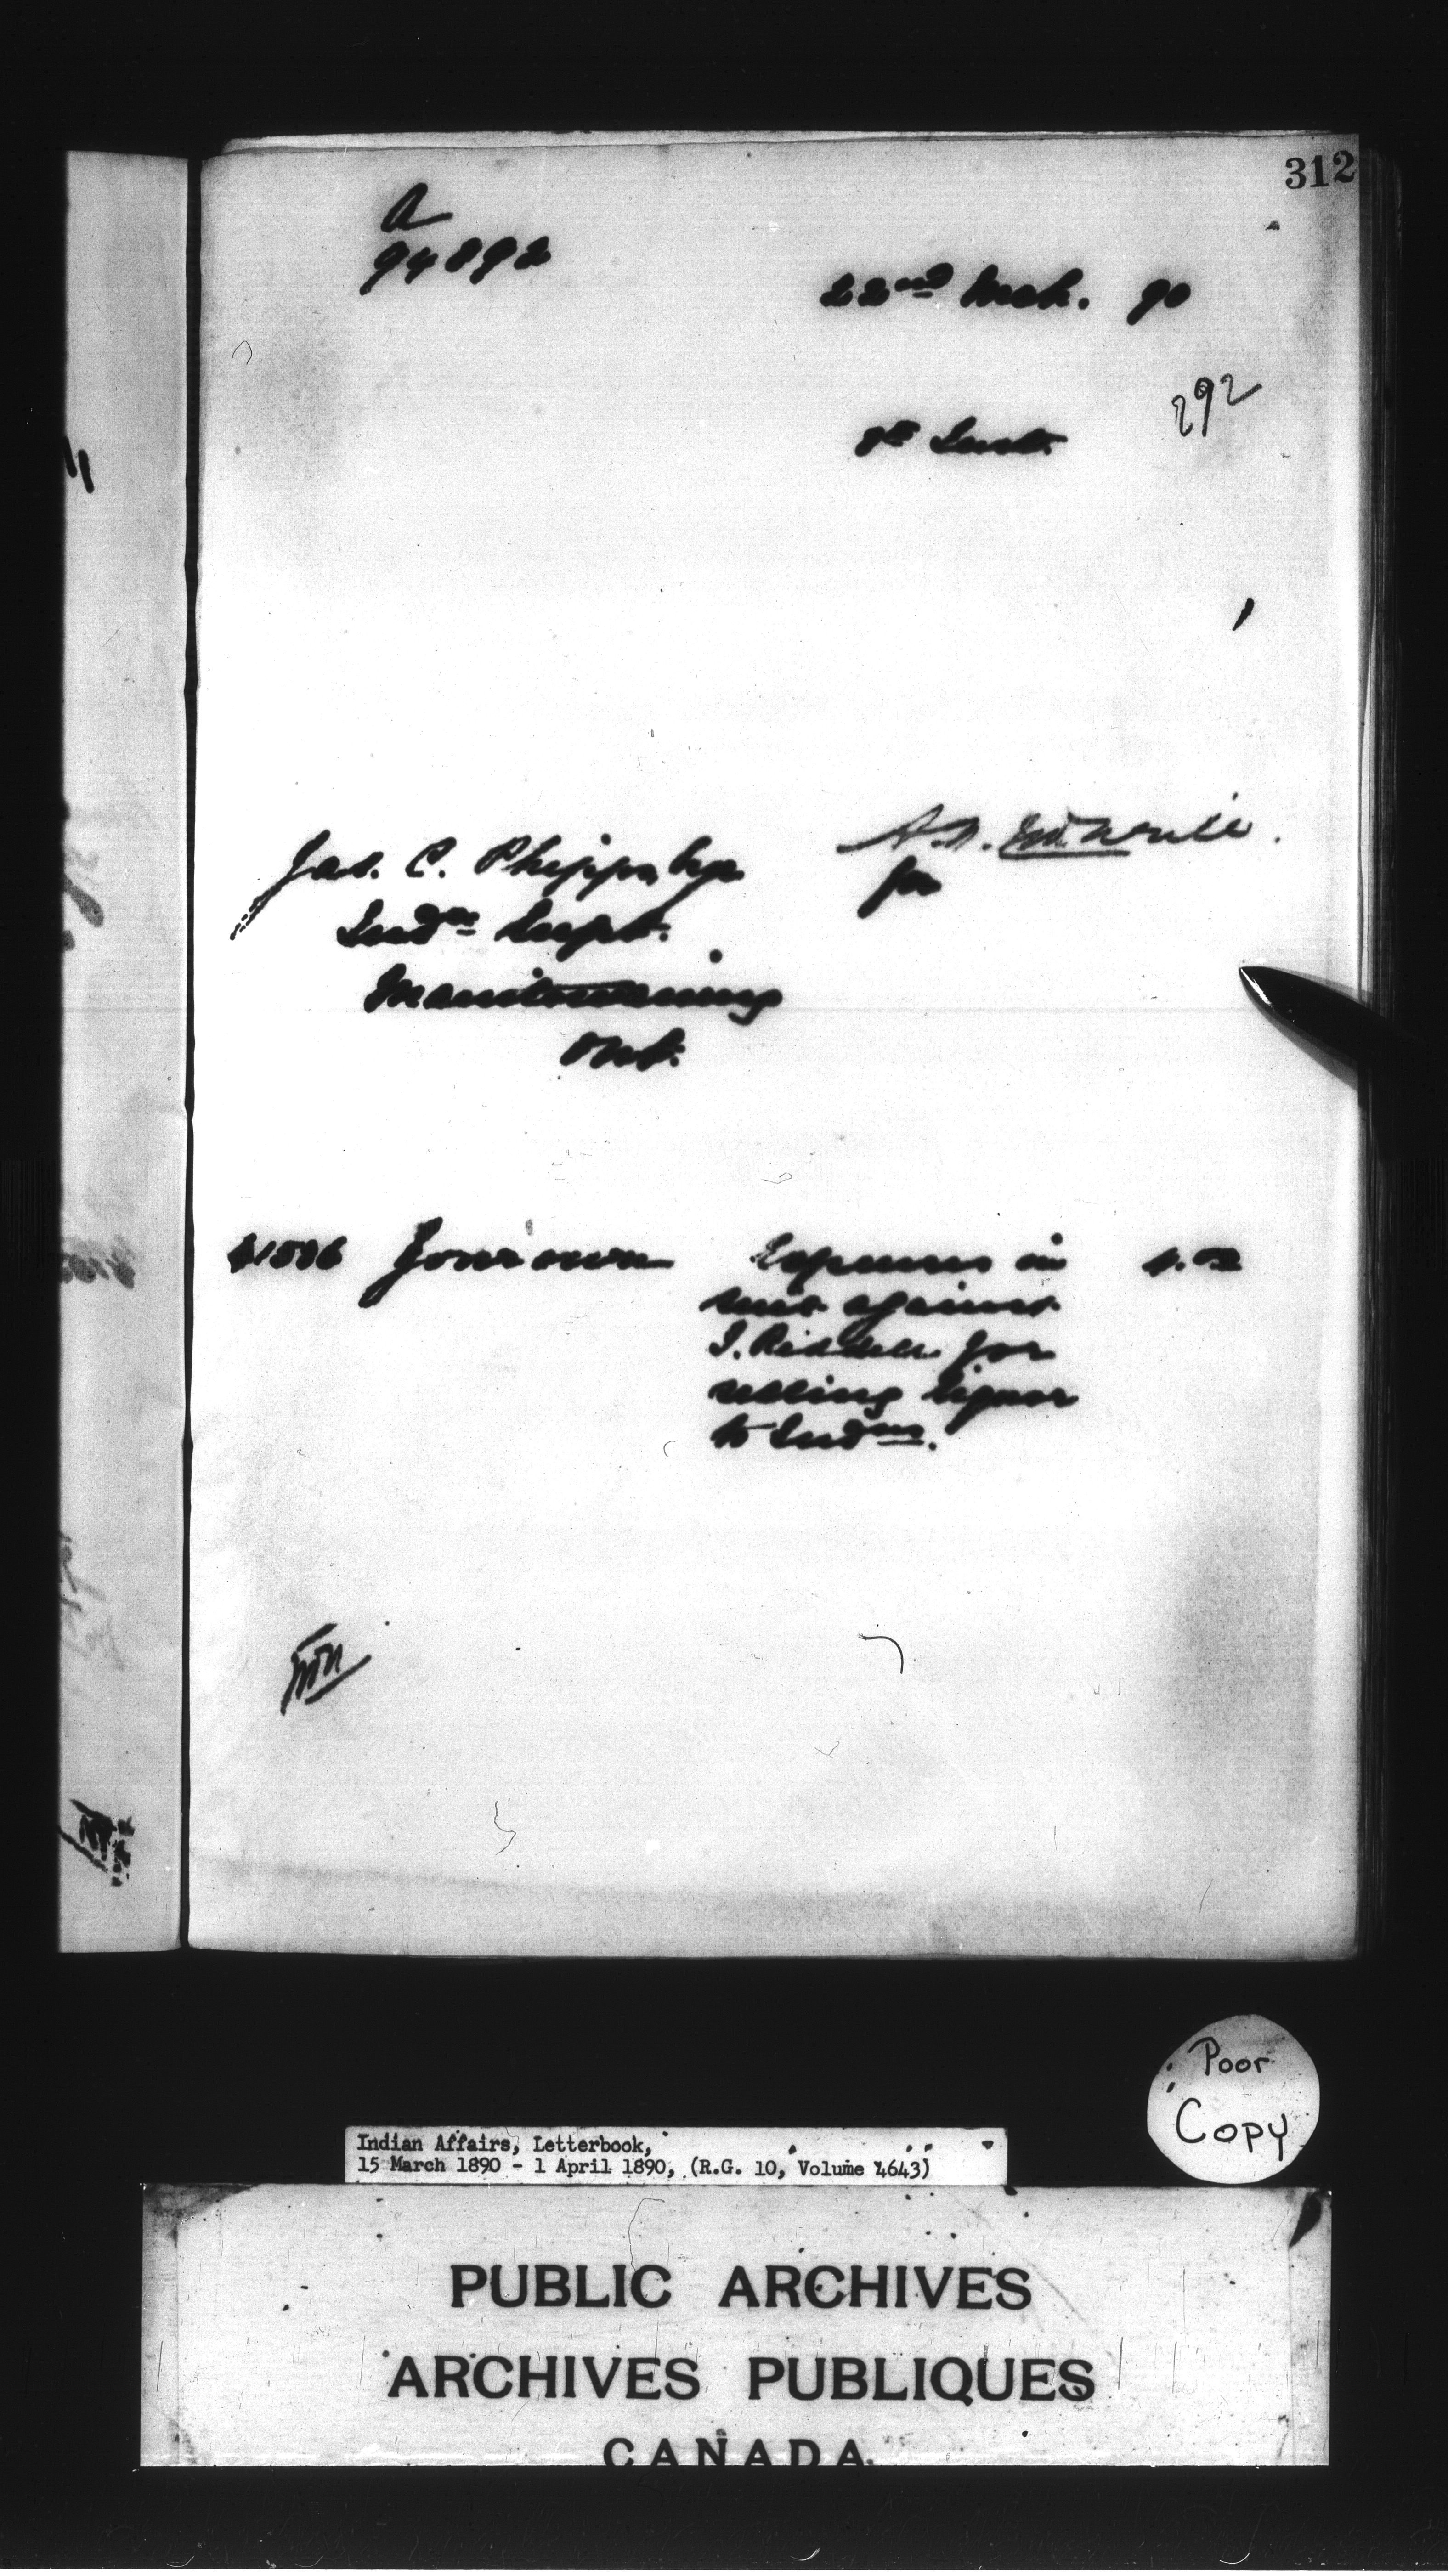 312
A
94892
22nd Mch. 90
292
8th Inst.
Jas. C. Phipps, Esq.
A.N. McNeill.
for
Indn Supt.
Manitowaning
Ont.
Your own
Expenses in
suit against
J. Riddell for
selling liquor
to Indns.
Poor
Copy
Indian Affairs, Letterbook,
15 March 1890 - 1 April 1890, (R.G. 10, Volume 4643)
PUBLIC ARCHIVES
ARCHIVES PUBLIQUES
CANADA